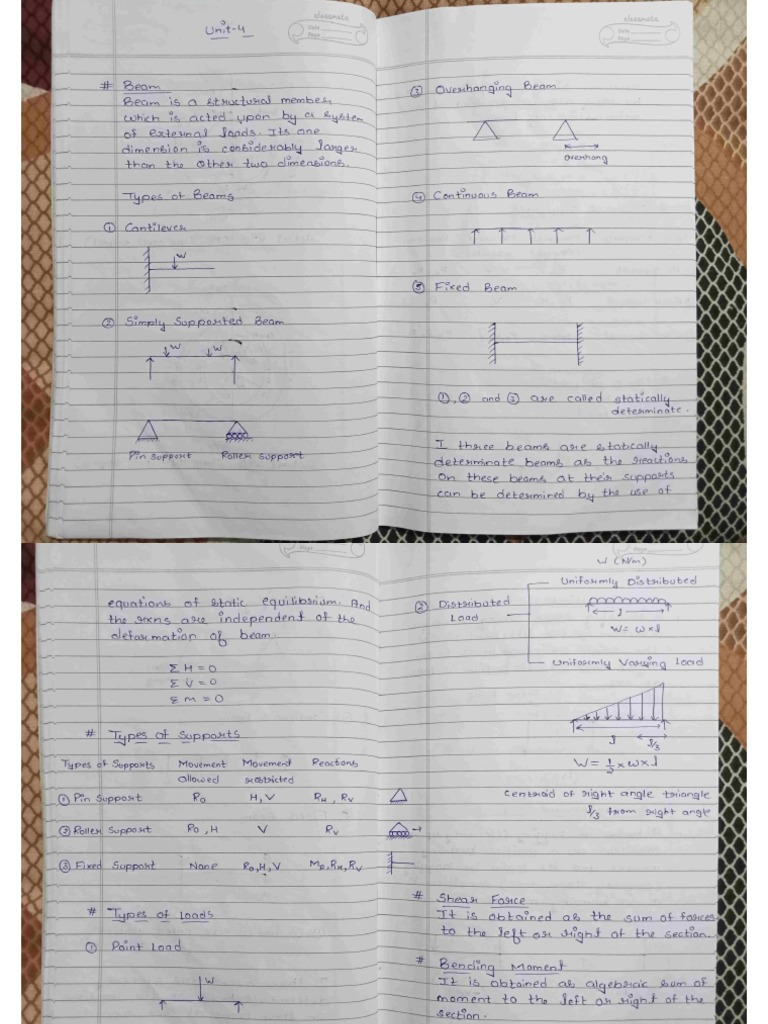 Unit-4
classmate
Date
Page
# Beam
Beam is a structural member
which is acted upon by a system
of external loads. Its one
dimension is considerably larger
than the other two dimensions.
Types of Beams
① Cantilever
W
② Simply Supported Beam
W W
Pin Support Roller Support
classmate
Date
Page
③ Overhanging Beam
overhang
④ Continuous Beam
⑤ Fixed Beam
①, ② and ③ are called statically
determinate.
I three beams are statically
determinate beams as the reactions
on these beams at their supports
can be determined by the use of
Page
equations of static equilibrium. And
the rxns are independent of the
deformation of beam.
Σ H = 0
Σ V = 0
Σ M = 0
# Types of Supports
Types of Supports Movement allowed Movement restricted Reactions
① Pin Support Ro H, V RH, RV
② Roller Support Ro, H V RV
③ Fixed Support None Ro, H, V MR, RH, RV
# Types of Loads
① Point Load
W
W (N/m)
② Distributed Load
Uniformly Distributed
l
W = w × l
Uniformly Varying Load
l l/3
W = 1/2 × w × l
Centroid of right angle triangle
l/3 from right angle
# Shear Force
It is obtained as the sum of forces
to the left or right of the section.
# Bending Moment
It is obtained as algebraic sum of
moment to the left or right of the
section.